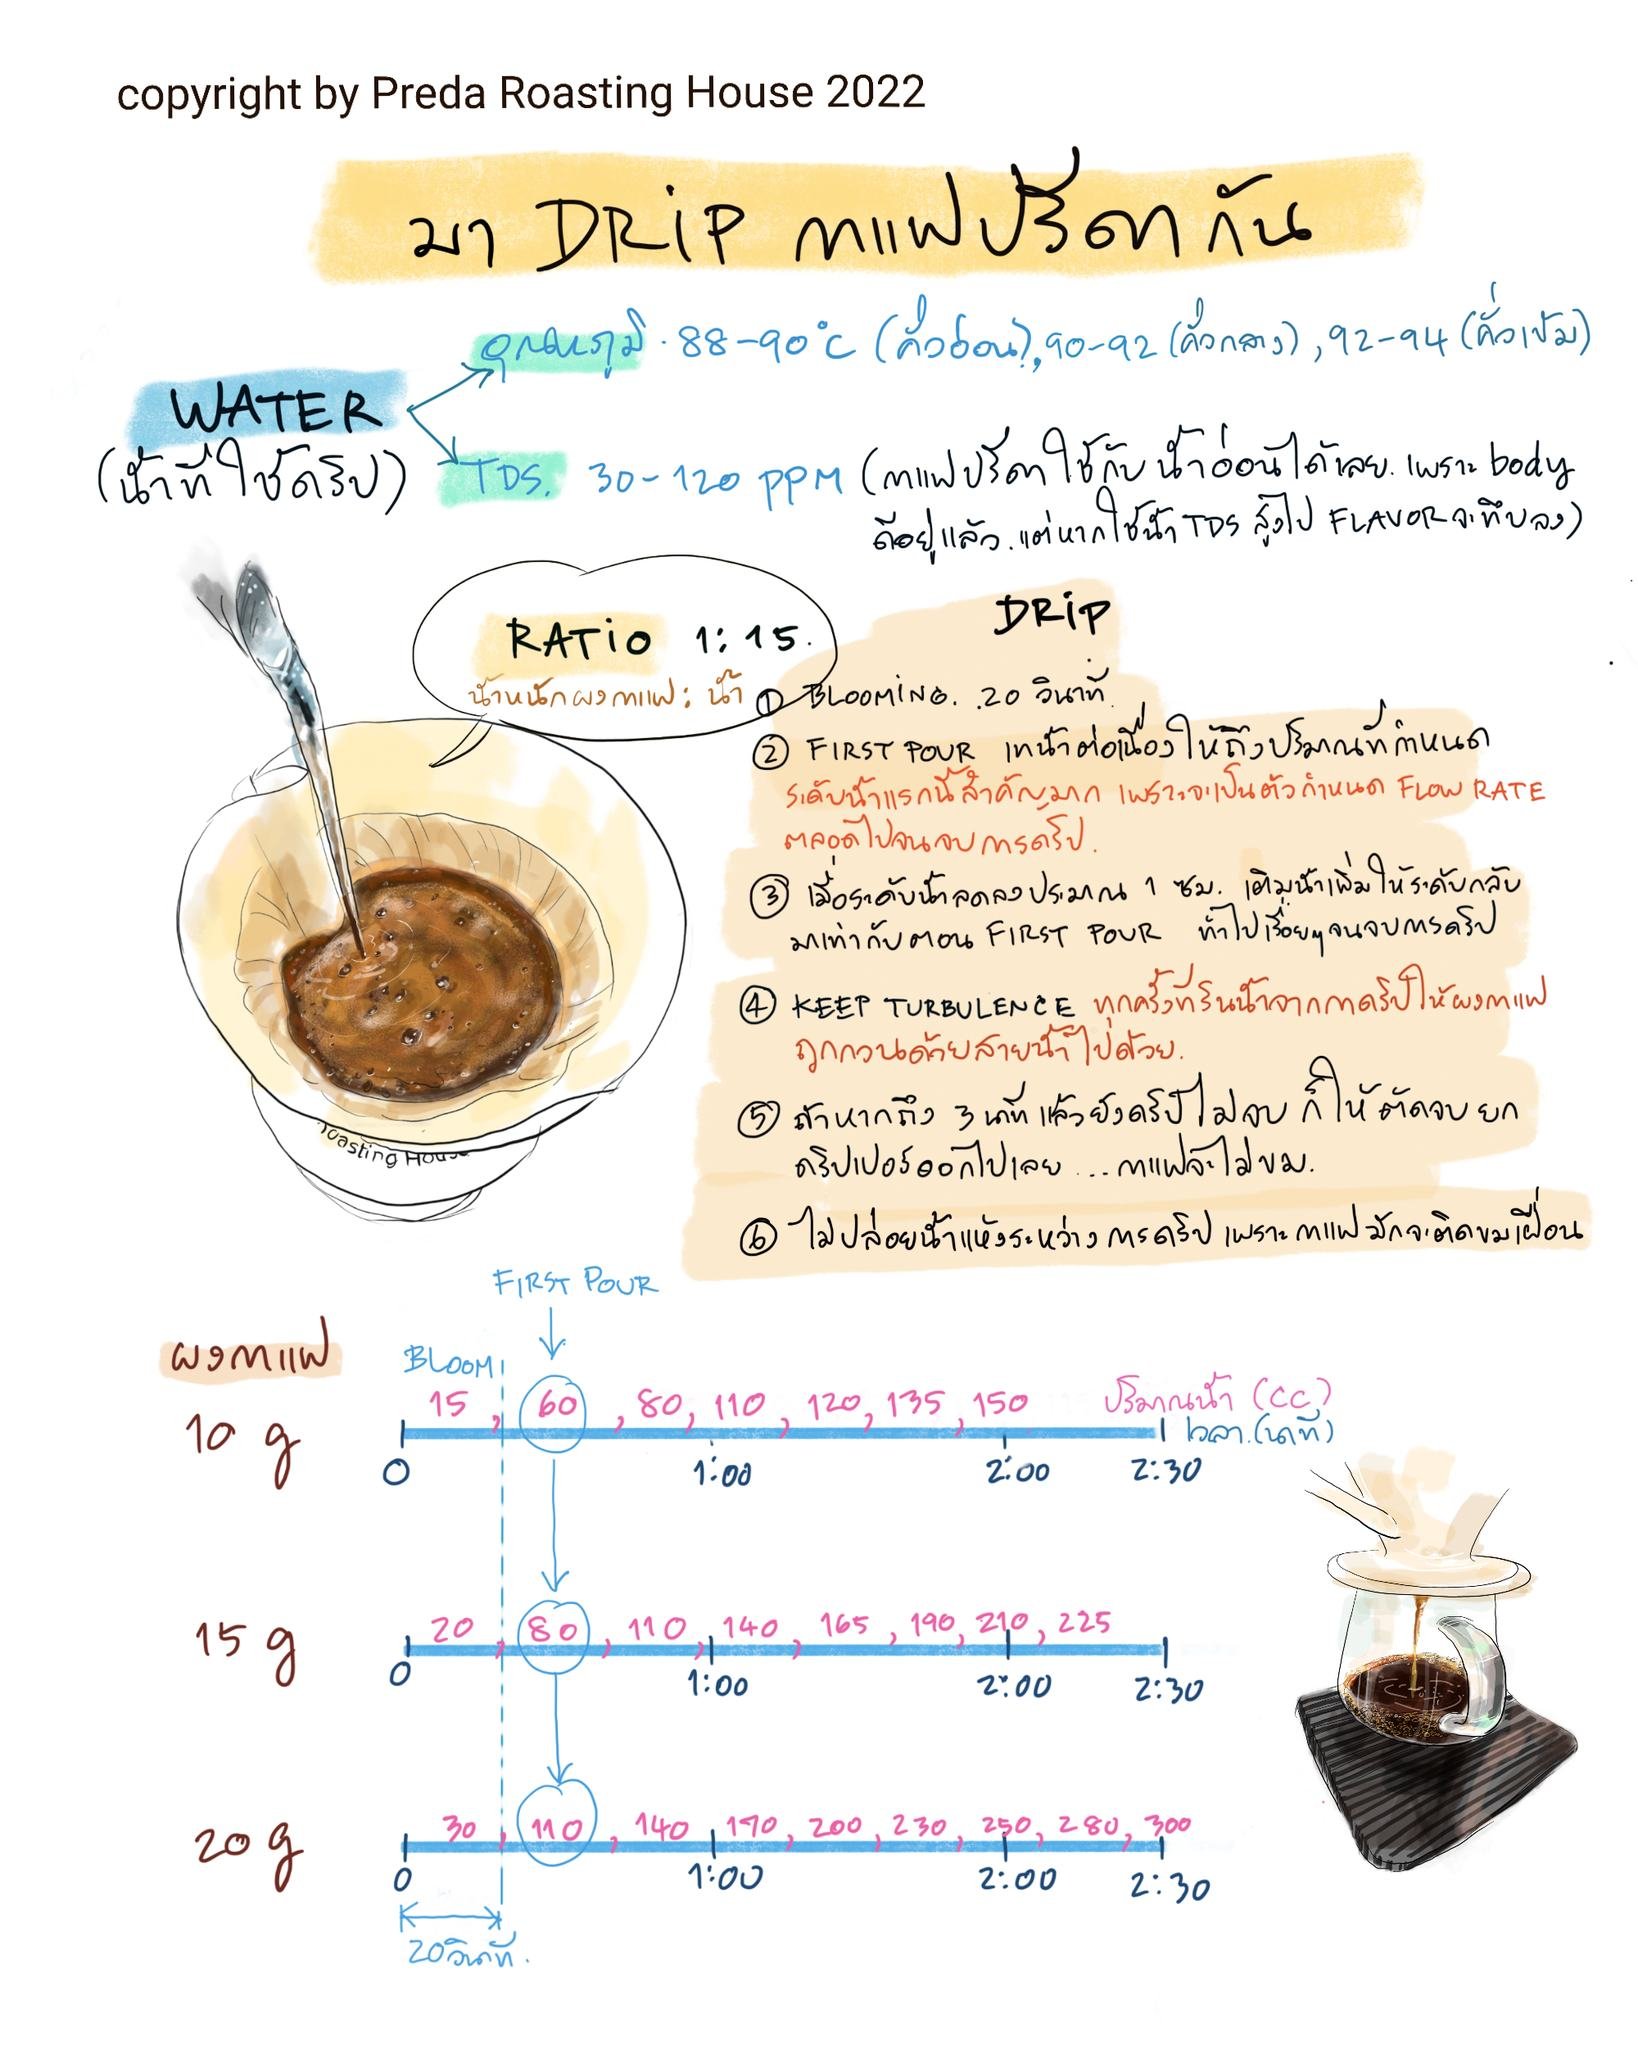 copyright by Preda Roasting House 2022
มา DRIP กาแฟปรีดากัน
อุณหภูมิ. 88-90°C (คั่วอ่อน), 90-92 (คั่วกลาง), 92-94 (คั่วเข้ม)
WATER
(น้ำที่ใช้ดริป)
TDS. 30-120 PPM (กาแฟปรีดาใช้กับน้ำอ่อนได้เลย. เพราะ body
ดีอยู่แล้ว. แต่หากใช้น้ำ TDS สูงไป FLAVOR จะทึบลง)
RATIO 1:15.
น้ำหนักผงกาแฟ: น้ำ
DRIP
① BLOOMING. 20 วินาที
② FIRST POUR เทน้ำต่อเนื่องให้ถึงปริมาณที่กำหนด
ระดับน้ำแรกนี้สำคัญมาก เพราะจะเป็นตัวกำหนด FLOW RATE
ตลอดไปจนจบการดริป.
③ เมื่อระดับน้ำลดลงประมาณ 1 ซม. เติมน้ำเพิ่มให้ระดับกลับ
มาเท่ากับตอน FIRST POUR ทำไปเรื่อยๆจนจบการดริป
④ KEEP TURBULENCE ทุกครั้งที่รินน้ำจากกาดริปให้ผงกาแฟ
ถูกกวนด้วยสายน้ำไปด้วย.
⑤ ถ้าหากถึง 3 นาที แล้วยังดริปไม่จบ ก็ให้ตัดจบยก
ดริปเปอร์ออกไปเลย ... กาแฟจะไม่ขม.
⑥ ไม่ปล่อยน้ำแห้งระหว่างการดริป เพราะกาแฟมักจะติดขมเฝื่อน
roasting House
FIRST POUR
ผงกาแฟ
BLOOM
10 g
15, 60, 80, 110, 120, 135, 150 ปริมาณน้ำ (CC)
0 1:00 2:00 2:30 เวลา.(นาที)
15 g
20, 80, 110, 140, 165, 190, 210, 225
0 1:00 2:00 2:30
20 g
30, 110, 140, 170, 200, 230, 250, 280, 300
0 1:00 2:00 2:30
20 วินาที.